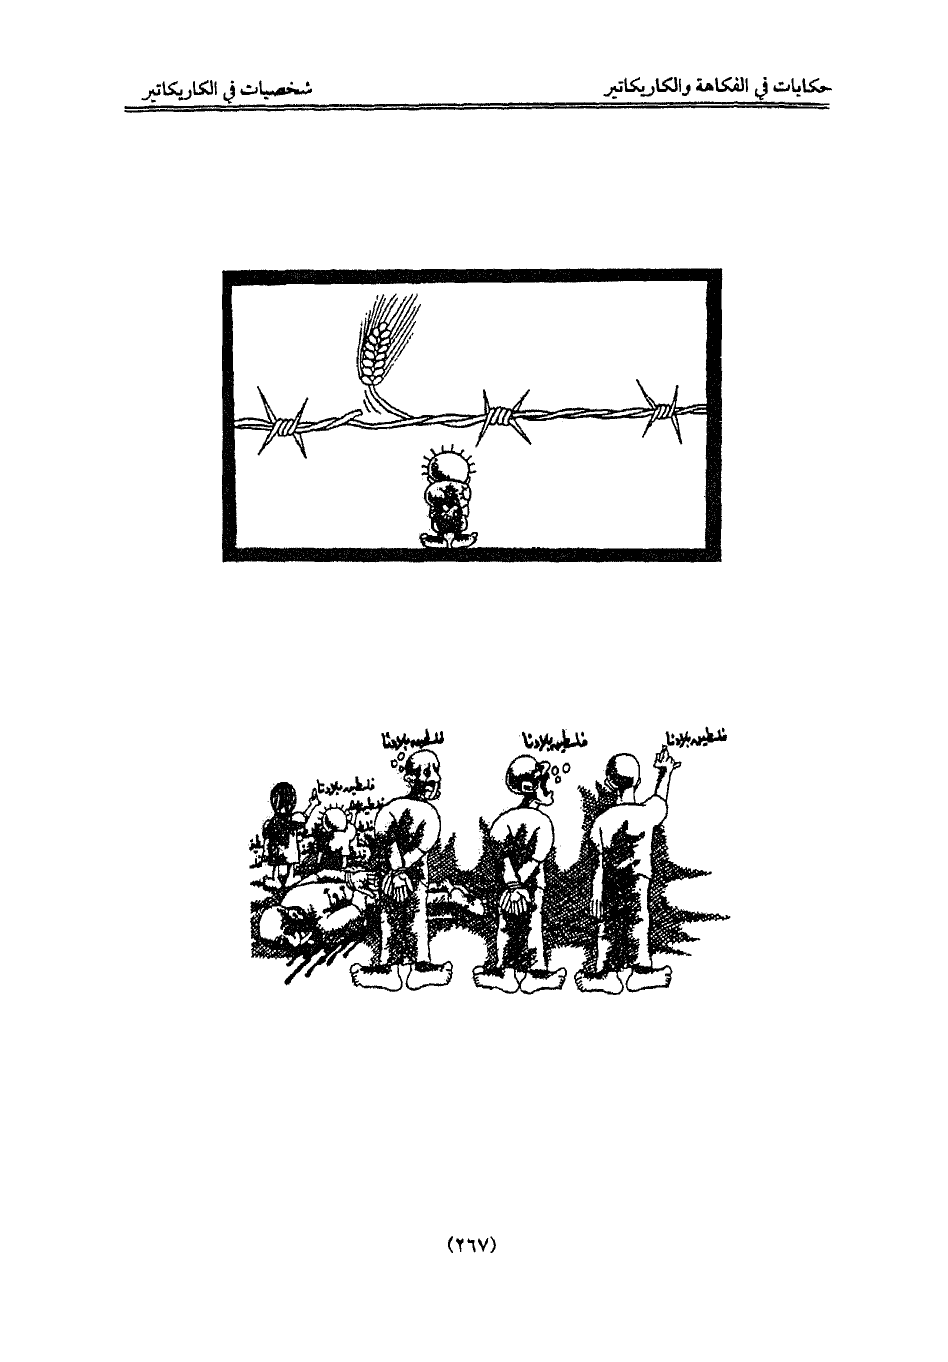 حكايات في الفكاهة والكاريكاتير
شخصيات في الكاريكاتير
فلسطين بلادنا
فلسطين بلادنا
فلسطين بلادنا
فلسطين بلادنا
فلسطين
(٢٦٧)